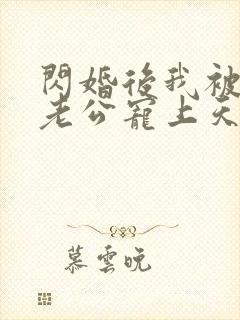 閃婚後我被
老公寵上天
慕雲晚